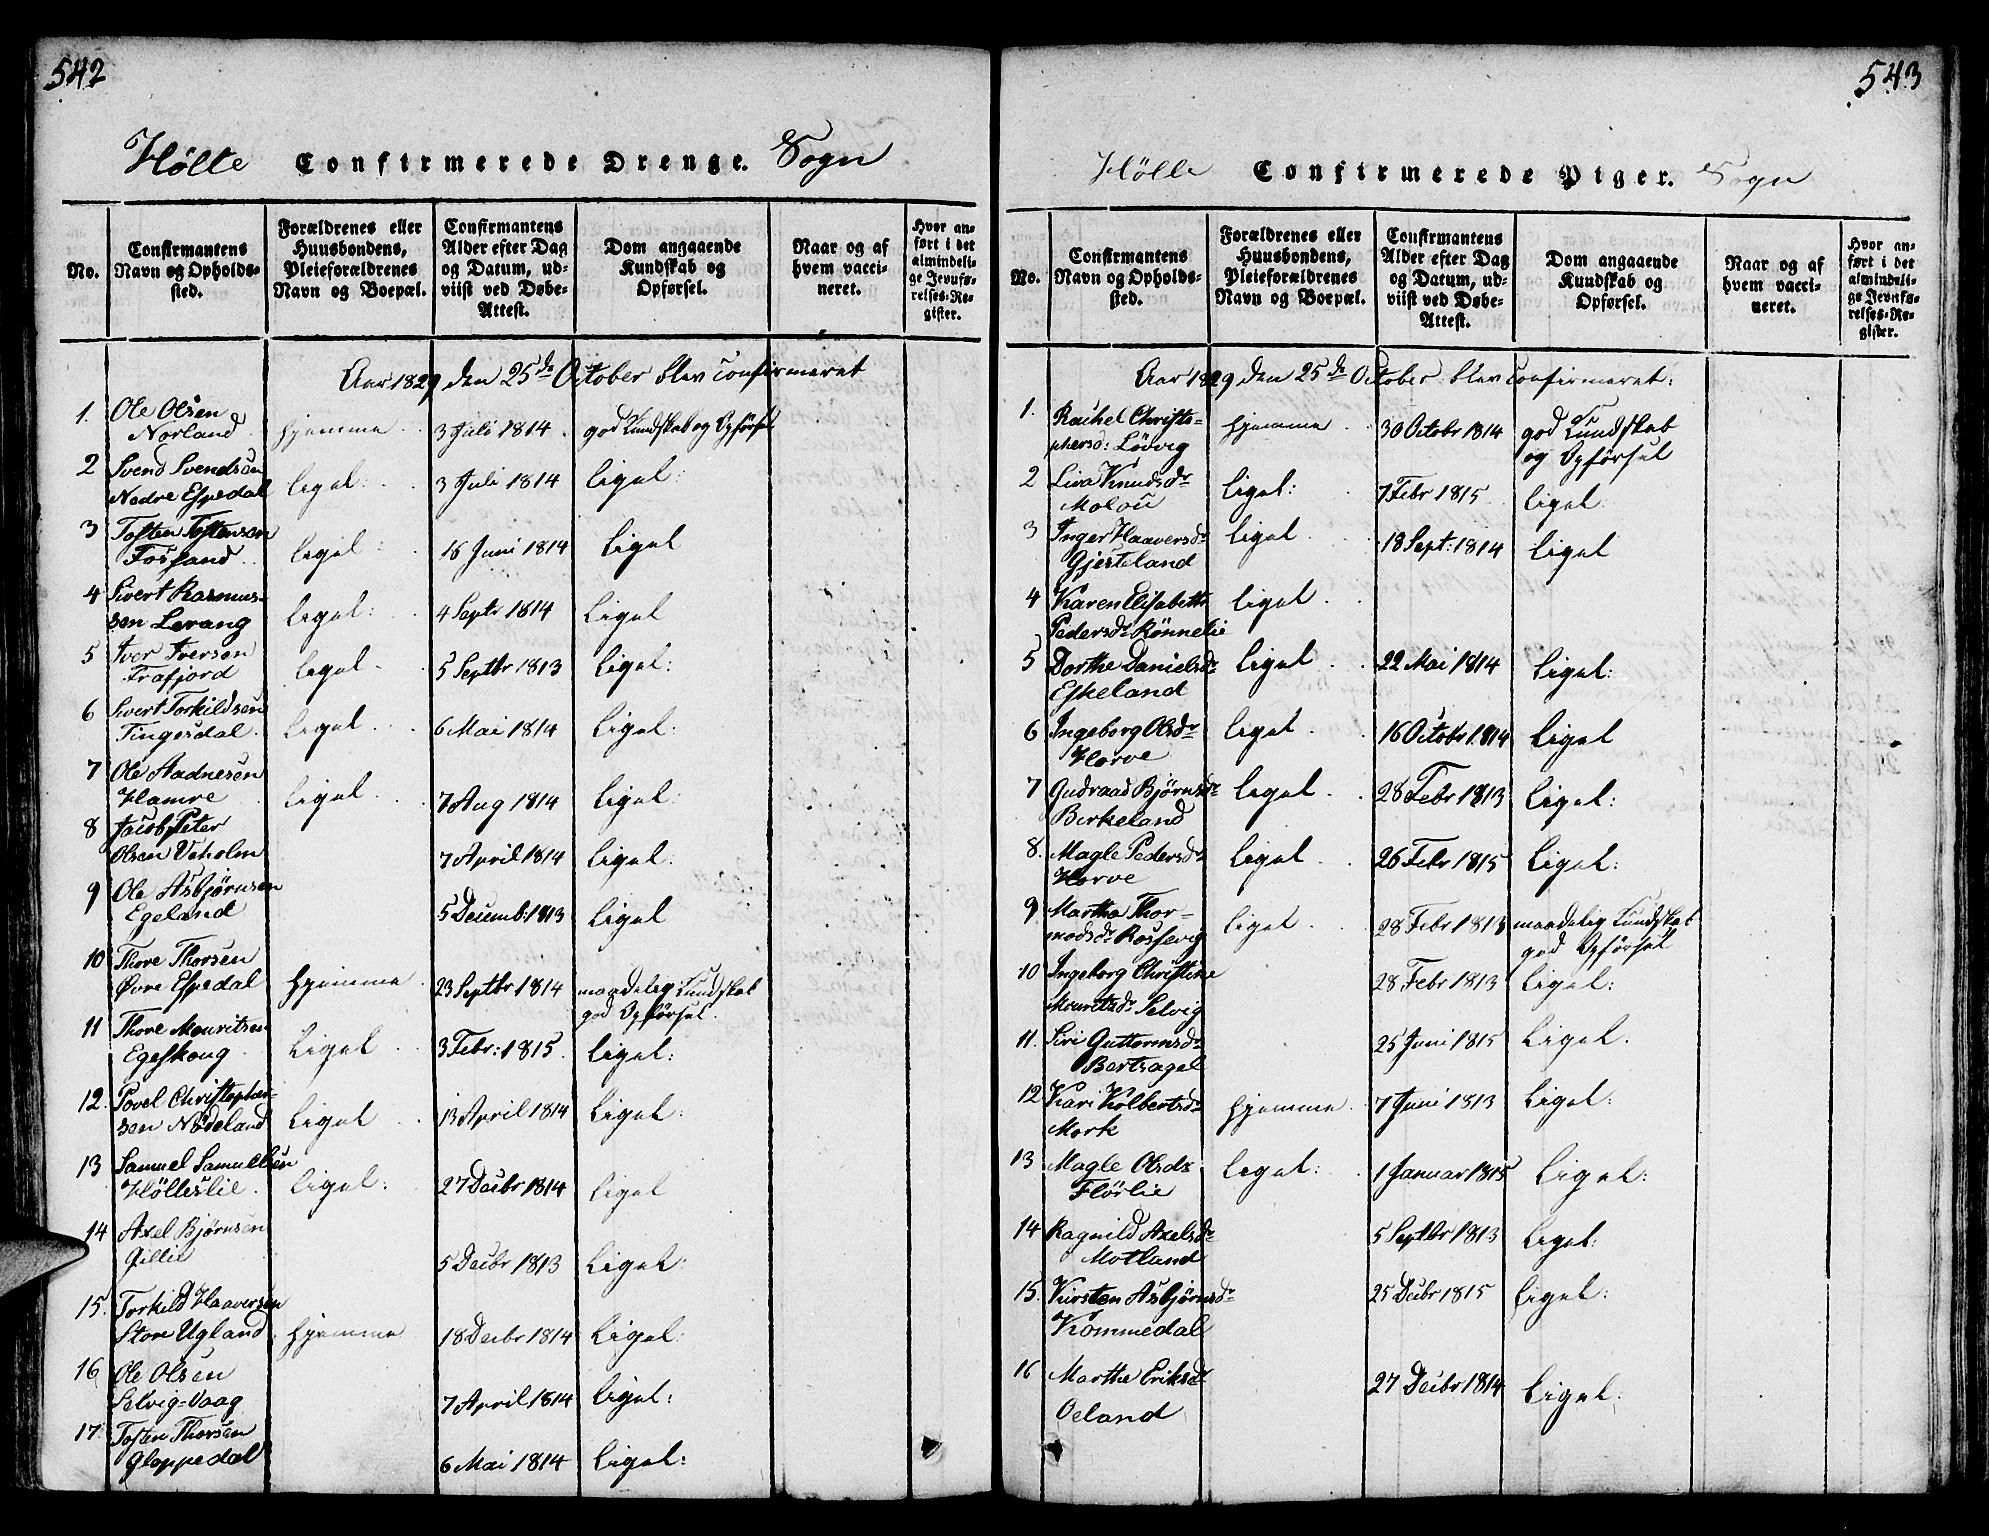 542
Hølle Confirmerede Drenge. Sogn
No.
Confirmantens Navn og Opholds-sted.
Forældrenes eller Huusbondens, Pleieforældrenes Navn og Boepæl.
Confirmantens Alder efter Dag og Datum, ud-viist ved Døbe-Attest.
Dom angaaende Kundskab og Opførsel.
Naar og af hvem vacci-neret.
Hvor an-ført i det almindeli-ge Jevnfø-relses-Re-gister.
Aar 1829 den 25de October blev confirmeret
1. Ole Olsen
Norland hjemme 3 Juli 1814. god Kundskab og Opførsel
2 Svend Svendsen
Nedre Espedal liget: 3 Juli 1814 liget:
3 Tosten Tostensen
Fossand liget 16 Juni 1814 liget
4 Sivert Rasmus-
sen Levang liget: 4 Septr 1814 liget
5 Iver Iversen
Frafjord liget 5 Septbr 1813 liget:
6 Sivert Torkildsen
Tingesdal. liget 6 Mai 1814 liget:
7 Ole Aadnesen
Hamre liget 7 Aug 1814 liget:
8 Jacob Peter
Olsen Veholm 7 April 1814 liget:
9 Ole Asbjørnsen
Egeland 5 Decemb: 1813 liget
10 Thore Thorsen
Øvre Espedal hjemme 23 Septbr 1814 maadelig Kundskab
god Opførsel.
11 Thore Mouritsen
Egeskoug liget 3 Febr: 1815. liget:
12. Povel Christopher-
sen Nødeland liget 13 April 1814 liget:
13 Samuel Samuelsen
Hølleslie. liget: 27 Decbr 1814 liget
14 Axel Bjørnsen
Gillie 5 Decbr 1813 liget:
15. Torkild Haaversen
Store Ugland hjemme 18 Decbr 1814 liget:
16 Ole Olsen
Selvig=Vaag 7 April 1814 liget:
17. Tosten Thorsen
Gloppedal 6 Mai 1814 liget:
543
Hølle Confirmerede Piger. Sogn
No.
Confirmantens Navn og Opholds-sted.
Forældrenes eller Huusbondens, Pleieforældrenes Navn og Boepæl.
Confirmantens Alder efter Dag og Datum, ud-viist ved Døbe-Attest.
Dom angaaende Kundskab og Opførsel.
Naar og af hvem vacci-neret.
Hvor an-ført i det almindeli-ge Jevnfø-relses-Re-gister.
Aar 1829 den 25de October blev confirmeret:
1. Rachel Christo-
phersd: Løvvig hjemme 30 Octobr 1814 god Kundskab
og Opførsel
2 Liva Knudsdr
Molou liget: 7 Febr 1815 liget:
3 Inger Haaversdr
Gjesteland liget 18 Sept: 1814 liget
4 Karen Elisabeth
Pedersdr Rønnelie liget
5 Dorthe Danielsdr
Eskeland liget 22 Mai 1814 liget:
6 Ingeborg Olsdr
Horve liget 16 Octobr 1814 liget
7 Gudraad Bjørnsdr
Birkeland liget 28 Febr 1813 liget:
8. Magle Pedersdr
Horve liget 26 Febr 1815 liget:
9 Martha Thor-
modsdr Rossevig liget 28 Febr 1813 maadelig Kundskab
god Opførsel
10 Ingeborg Christine
Mouritsdr Selvig 28 Febr 1813 liget:
11. Siri Guttormsdr
Bertsagel 25 Juni 1815 liget.
12 Kari Kolbertsdr
Mork hjemme 7 Juni 1813 liget:
13 Magle Olsdr
Flørlie liget: 1 Januar 1815 liget:
14 Ragnild Axelsdr
Motland 5 Septbr 1813 liget:
15. Kirsten Asbjørnsdr
Kommedal 25 Decbr 1815 liget:
16 Marthe Eriksdr
Oeland 27 Decbr 1814 liget: